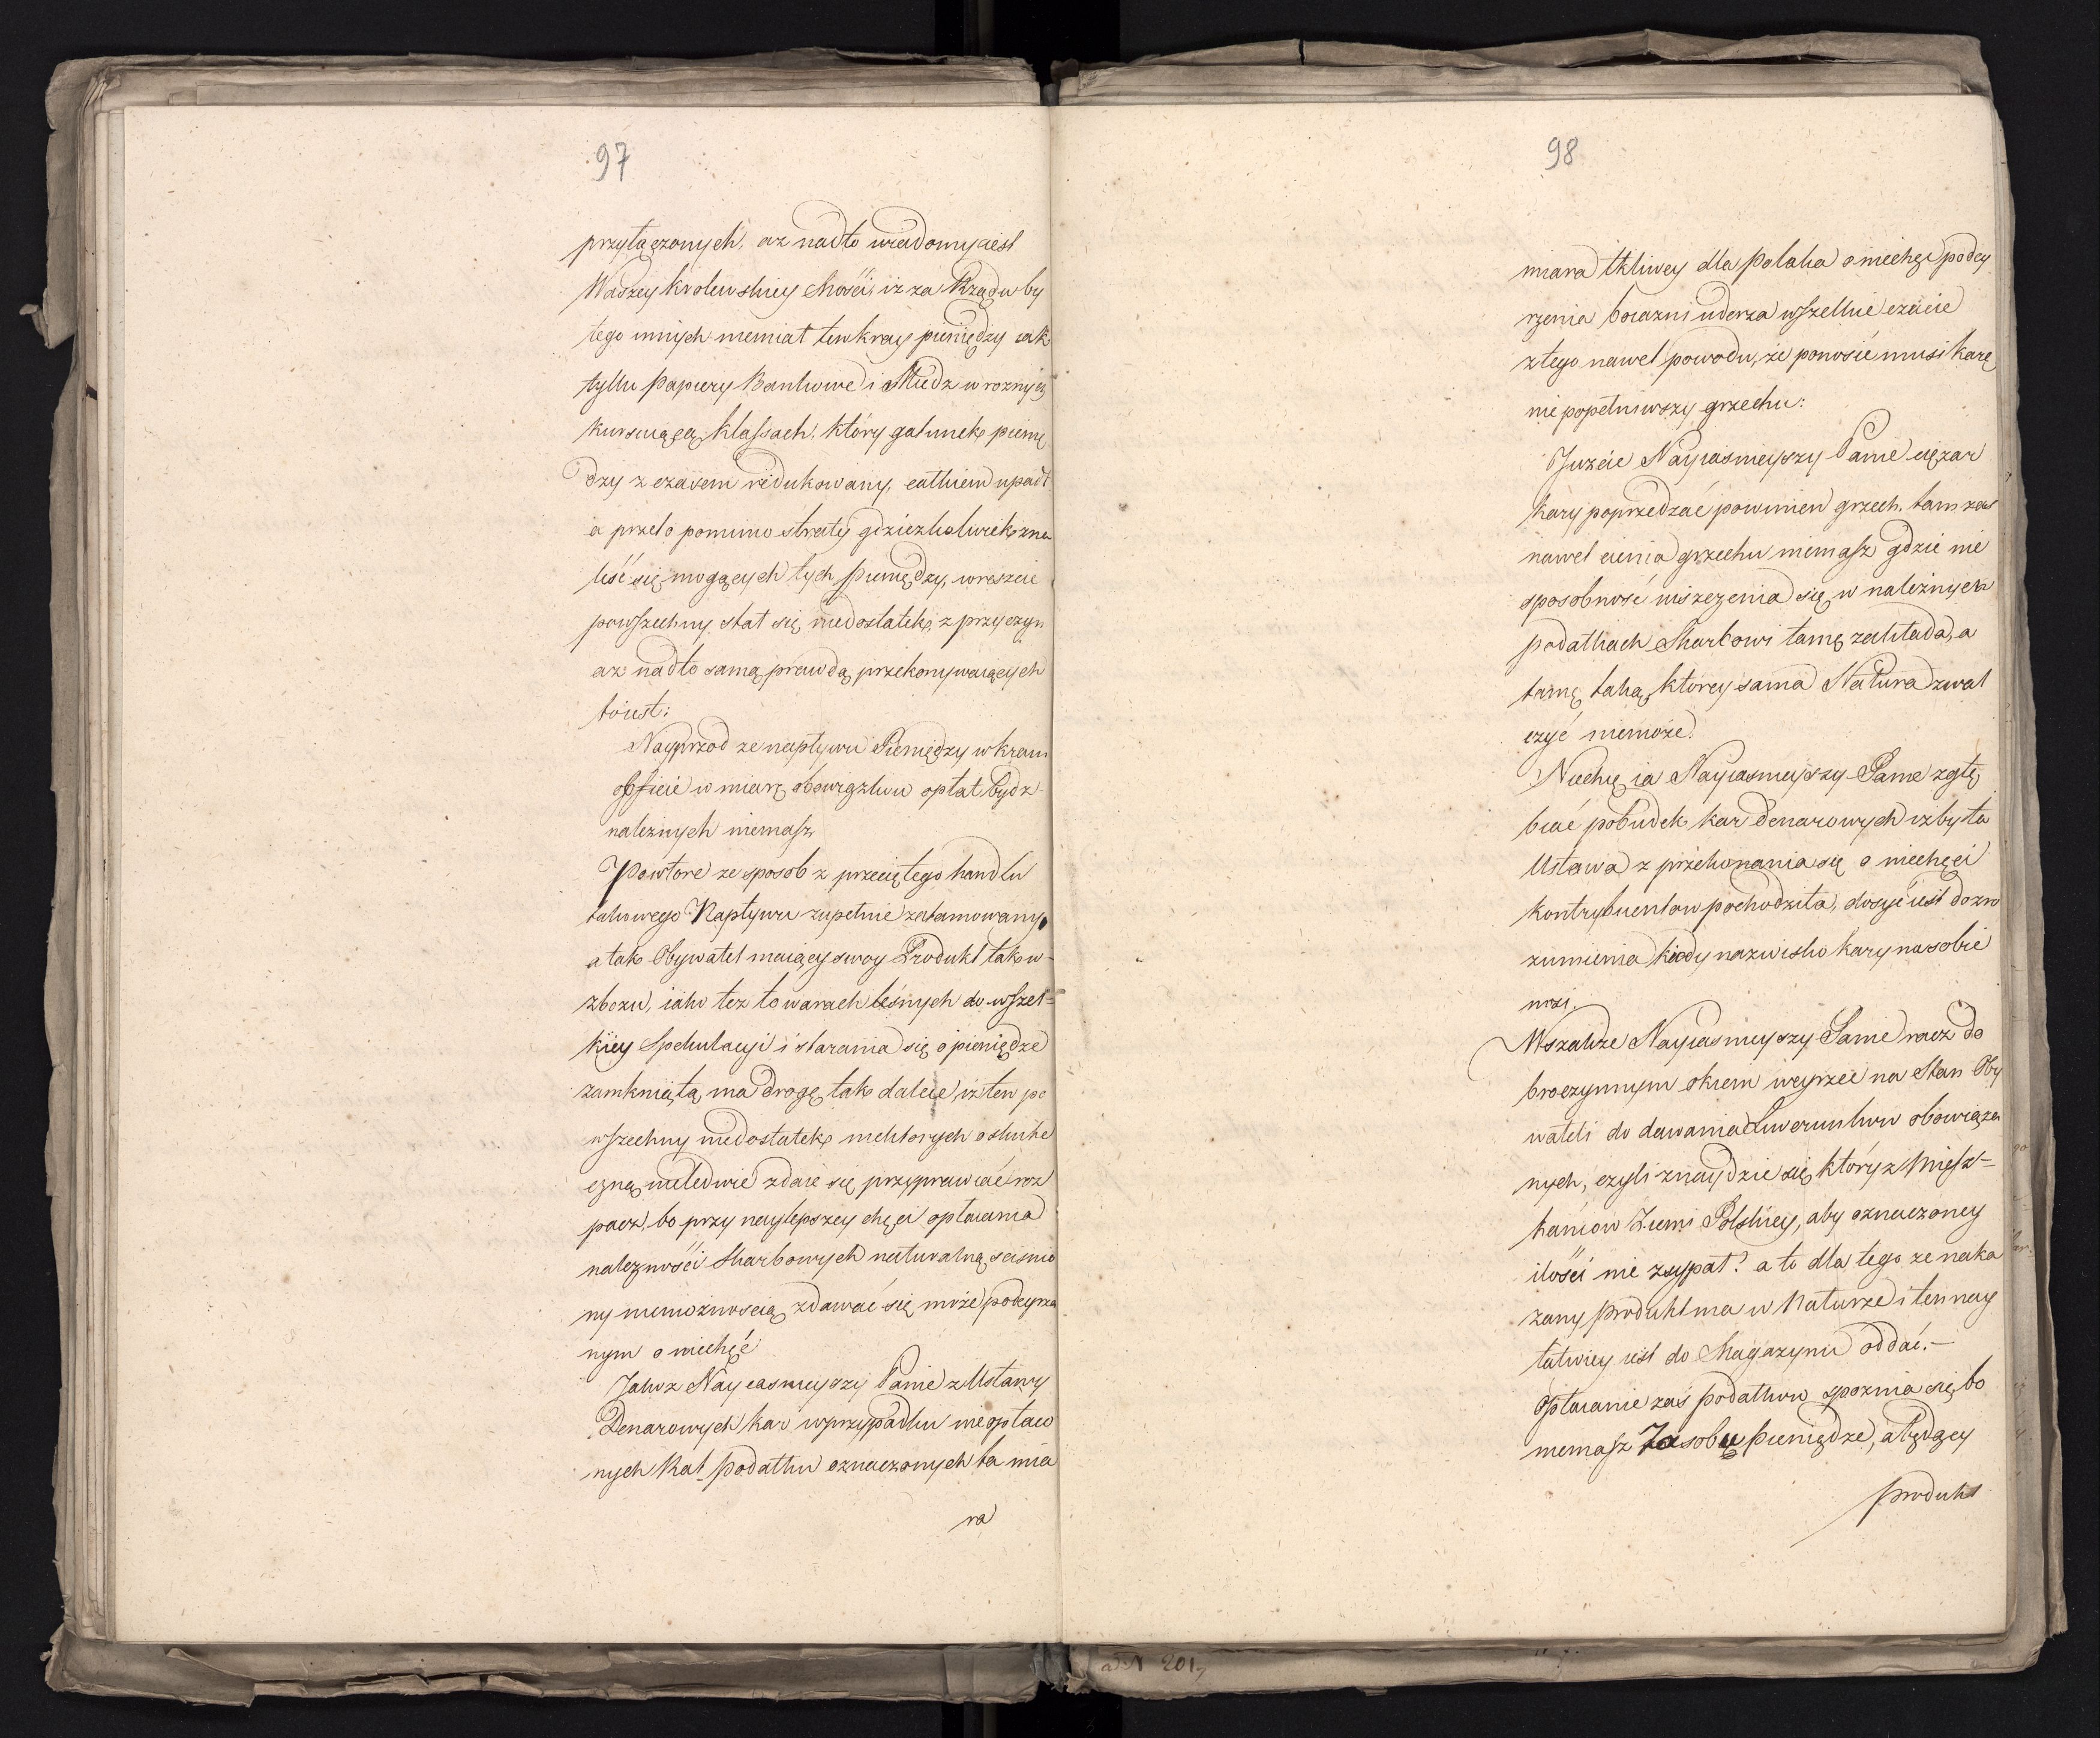 97
przyłączonych. aż nadto wiadomy iest
Waszey Krolewskiey Mości, iż za Rządu by
łego innych niemiał ten kray pieniędzy iak
tylko Papiery Bankowe i Miedz w rożnych
kursuiącą klassach, który gatunek pienię
dzy z czasem redukowany, całkiem upadł
a przeto pomimo straty gdzieżkolwiek zna
leść się mogących tych Pieniędzy, wreszcie
powszechny stał się niedostatek, z przyczyn
aż nadto samą prawdą przekonywaiących
toiest:
Nayprzod ze napływu Pieniędzy w kraiu
obficie w miarę obowiązku opłat bydz
należnych niemasz
Powtore ze sposob z przeciętego handlu
takowego Napływu zupełnie zatamowany,
a tak Obywatel maiący swoy Produkt tak w
zbożu, iako też towarach leśnych do wszel=
kiey Spekulacyi i starania się o pieniądze
zamkniętą ma drogę, tak dalece, iż ten po
wszechny niedostatek niektorych o
czną nieledwie zdaie się przyprawiać roz
pacz. bo przy naylepszey chęci opłacania
należności Skarbowych naturalną
ny niemożnością zdawać się może podeyrza
nym o niechęć
Jakoż Nayiasnieyszy Panie z Ustawy
Denarowych kar w przypadku nieopłaco
nych Rat podatku oznaczonych ta mia
ra
98
miara tkliwey dla Polaka o niechęci podey
rzenia boiazni uderza wszelkie czucie
z tego nawet powodu, że ponosić musi karę
nie popełniwszy grzechu:
Juzcie Nayiasnieyszy Panie ciężar
kary poprzedzać powinien grzech, tam zaś
nawet cienia grzechu niemasz gdzie nie
sposobność uiszczenia się w należnych
podatkach Skarbowi tamę zakłada, a
tamę taką, ktorey sama Natura zwal
czyć niemoże.
Niechcę ia Nayiasnieyszy Panie zgłę
biać pobudek kar denarowych iżby ta
Ustawa z przekonania się o niechęci
kontrybuentow pochodziła, dosyć iest do zro
zumienia kiedy nazwisko kary na sobie
nosi.
Wszakże Nayiasnieyszy Panie racz do
broczynnym okiem weyrzeć na Stan Oby
wateli do dawania Liwerunku obowiąza
nych, czyli znaydzie się który z Miesz=
kańcow Ziemi Polskiey, aby oznaczoney
ilości nie zsypał? a to dla tego ze naka
zany produkt ma w Naturze i ten nay
łatwiey iest do Magazynu oddać.–
Opłacanie zaś podatkow spoznia się, bo
niemasz Zasobu pieniądze, a będący
produkt
ad N 201,